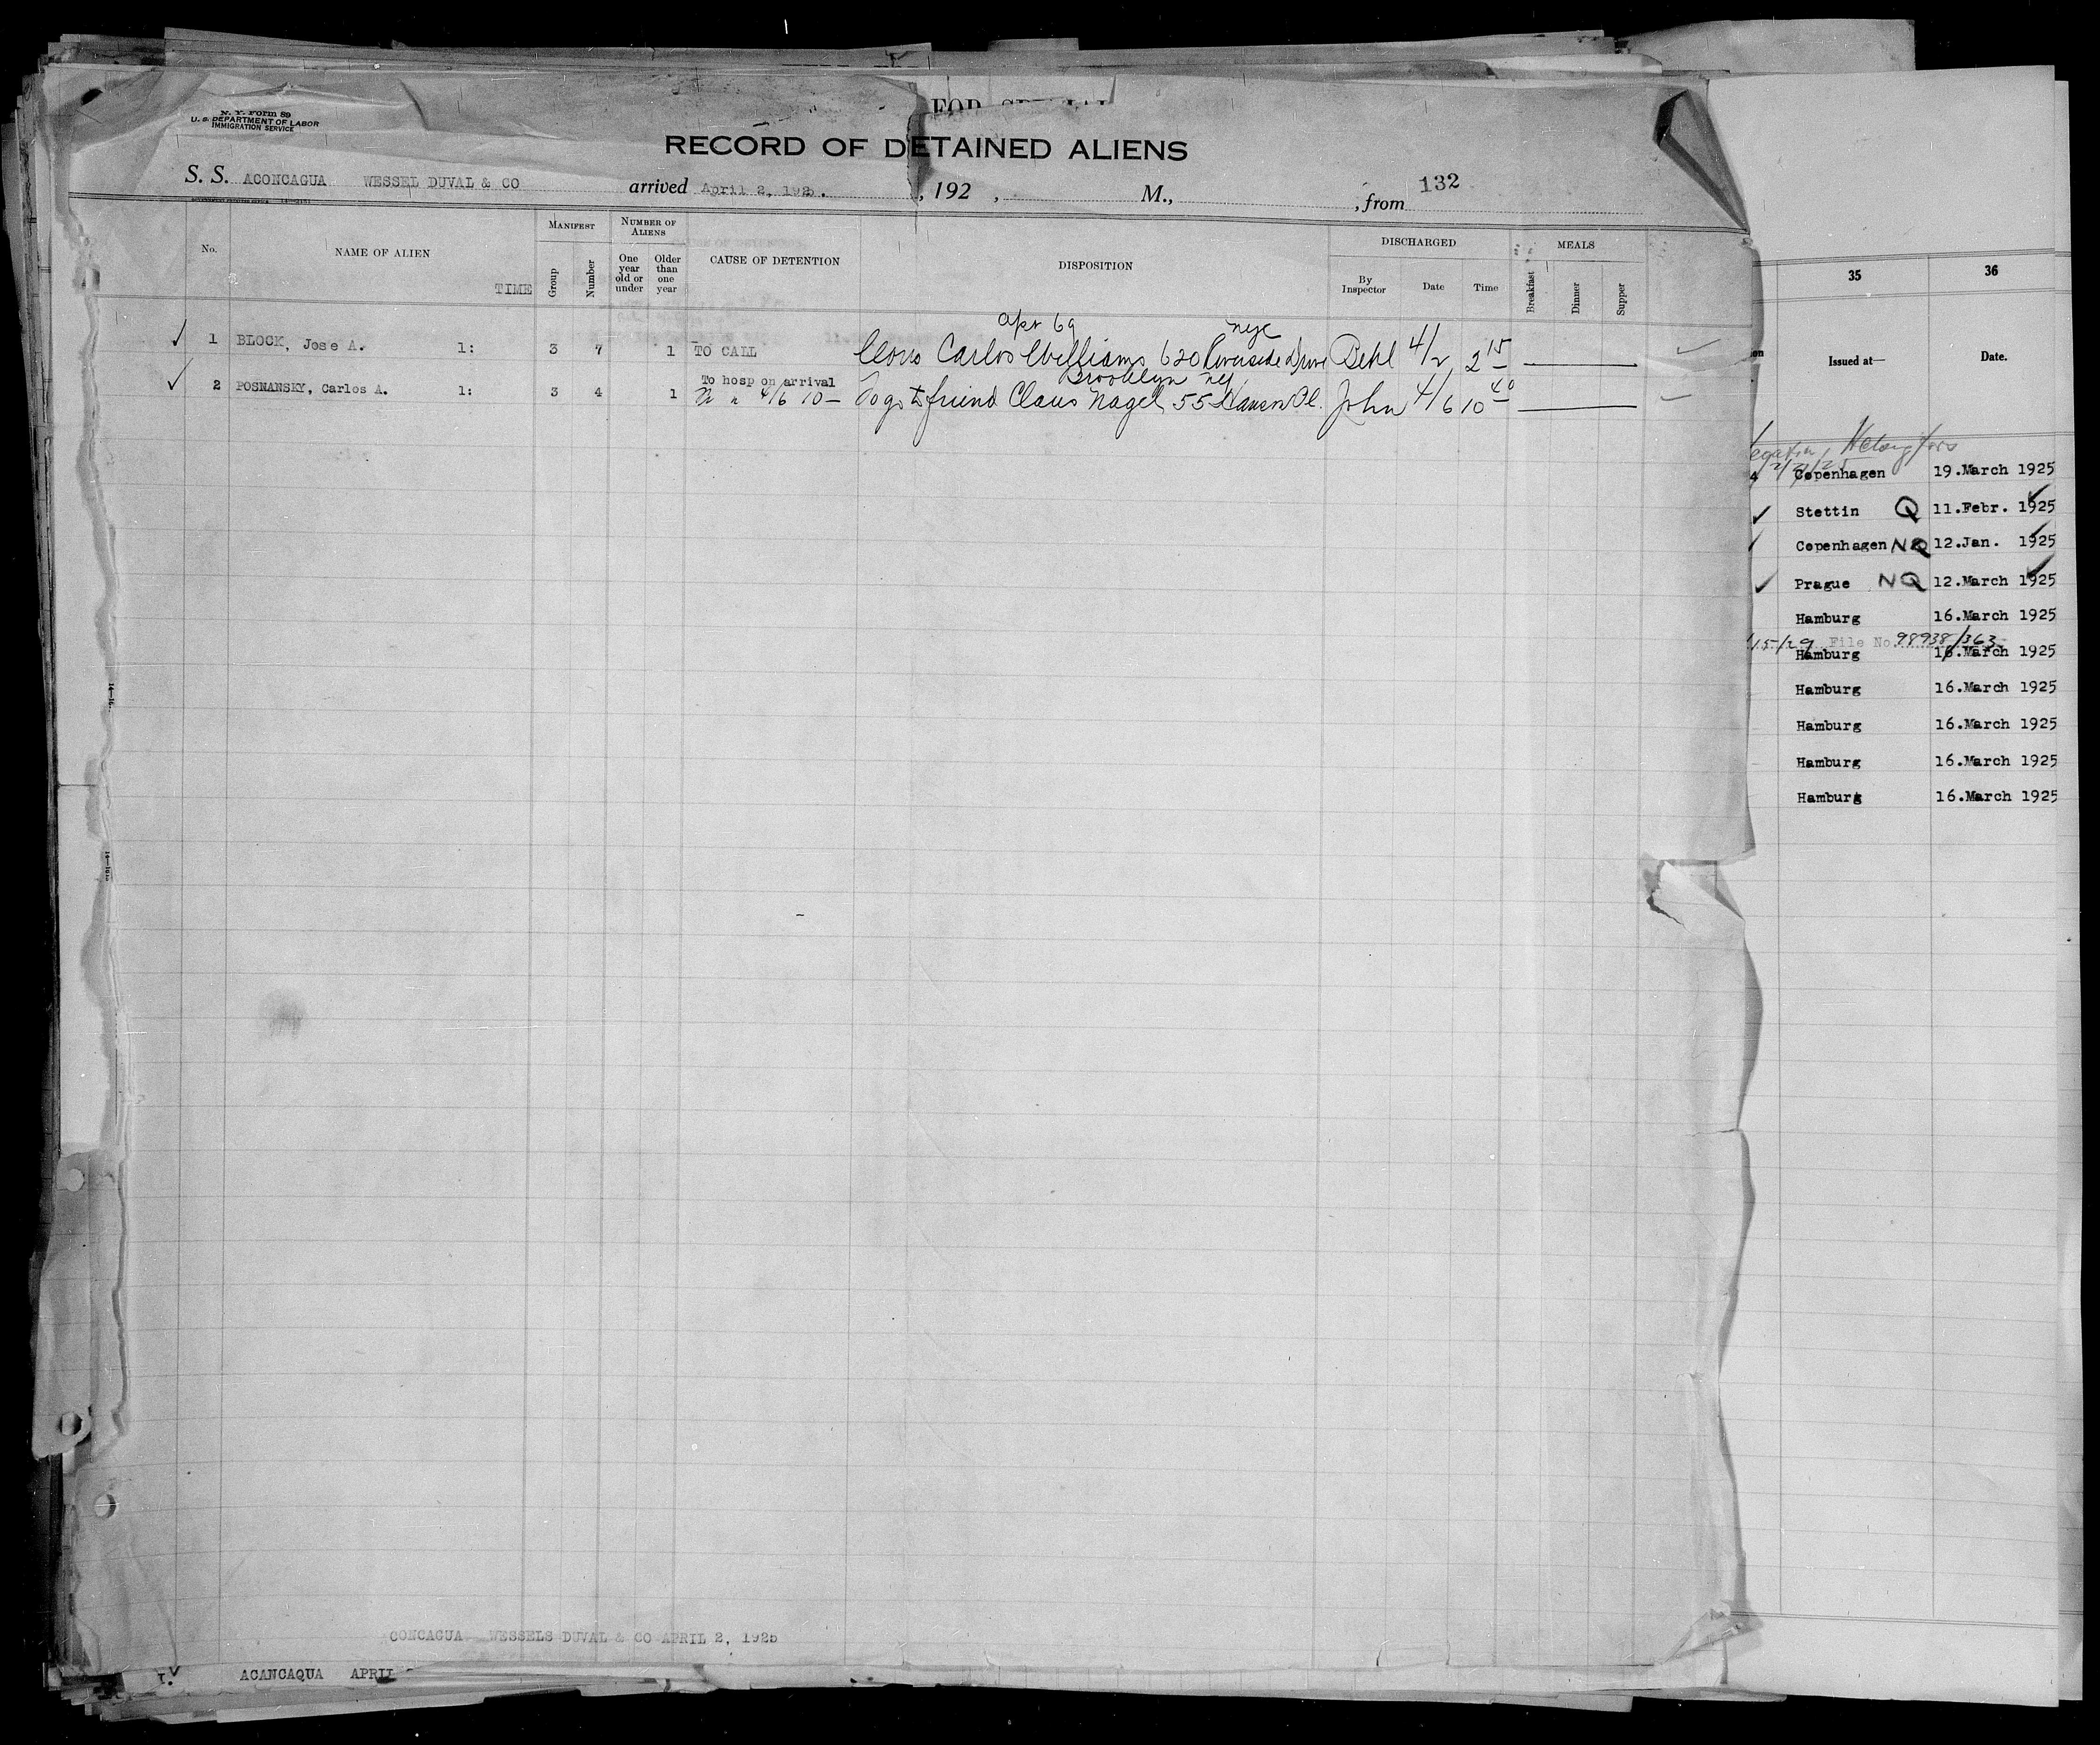 N. Y. Form 89
U. S. DEPARTMENT OF LABOR
IMMIGRATION SERVICE
RECORD OF DETAINED ALIENS
S. S. ACONCAGUA WESSEL DUVAL & CO arrived April 2, 1925. , 192 , M., , from 132
No. NAME OF ALIEN TIME MANIFEST Group Number NUMBER OF ALIENS One year old or under Older than one year CAUSE OF DETENTION DISPOSITION DISCHARGED By Inspector Date Time MEALS Breakfast Dinner Supper
apt 69 nyc
1 BLOCK, Jose A. 1: 3 7 1 TO CALL Carlos Williams 620 Riverside Drive 4/2 2 15
To hosp on arrival Brooklyn ny
2 POSNANSKY, Carlos A. 1: 3 4 1 4/6 10 — To go to friend Claus Nagel, 55 Hanson Pl. John 4/6 10 40
CONCAGUA WESSELS DUVAL & CO APRIL 2, 1925
ACANCAQUA APRIL
35 36
Issued at— Date.
Copenhagen 19.March 1925
Stettin Q 11.Febr. 1925
Copenhagen NQ 12.Jan. 1925
Prague NQ 12.March 1925
Hamburg 16.March 1925
File No. 98938/363
Hamburg 16.March 1925
Hamburg 16.March 1925
Hamburg 16.March 1925
Hamburg 16.March 1925
Hamburg 16.March 1925